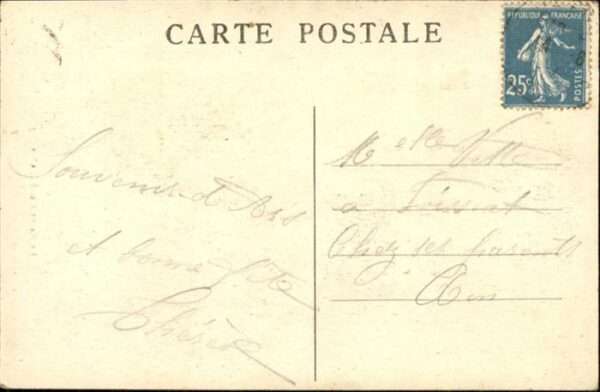 CARTE POSTALE
REPUBLIQUE FRANÇAISE
25c
POSTES
Souvenir d'Ars
et bonne fête
Thérèse
Melle
à
Chez ses parents
Ain